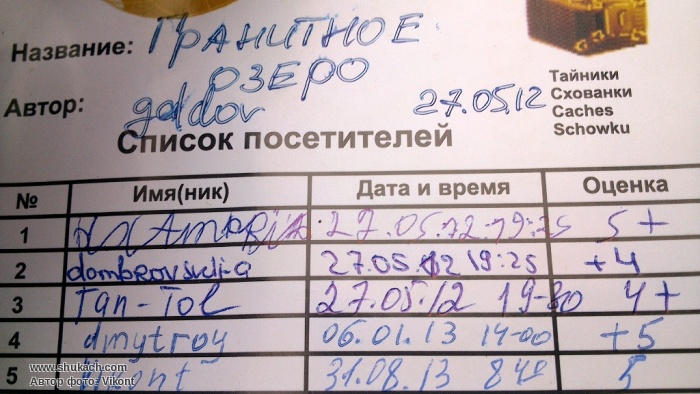 Название: Гранитное
озеро
Автор: goldov 27.05.12
Тайники
Схованки
Caches
Schowku
Список посетителей
№ Имя(ник) Дата и время Оценка
1 27.05.12 19:25 5+
2 dombrovskij-a 27.05.12 19:25 +4
3 Tan-Tol 27.05.12 19-30 4+
4 dmytroy 06.01.13 14-00 +5
www.shukach.com
Автор фото: Vikont
5 Vikont 31.08.13 5